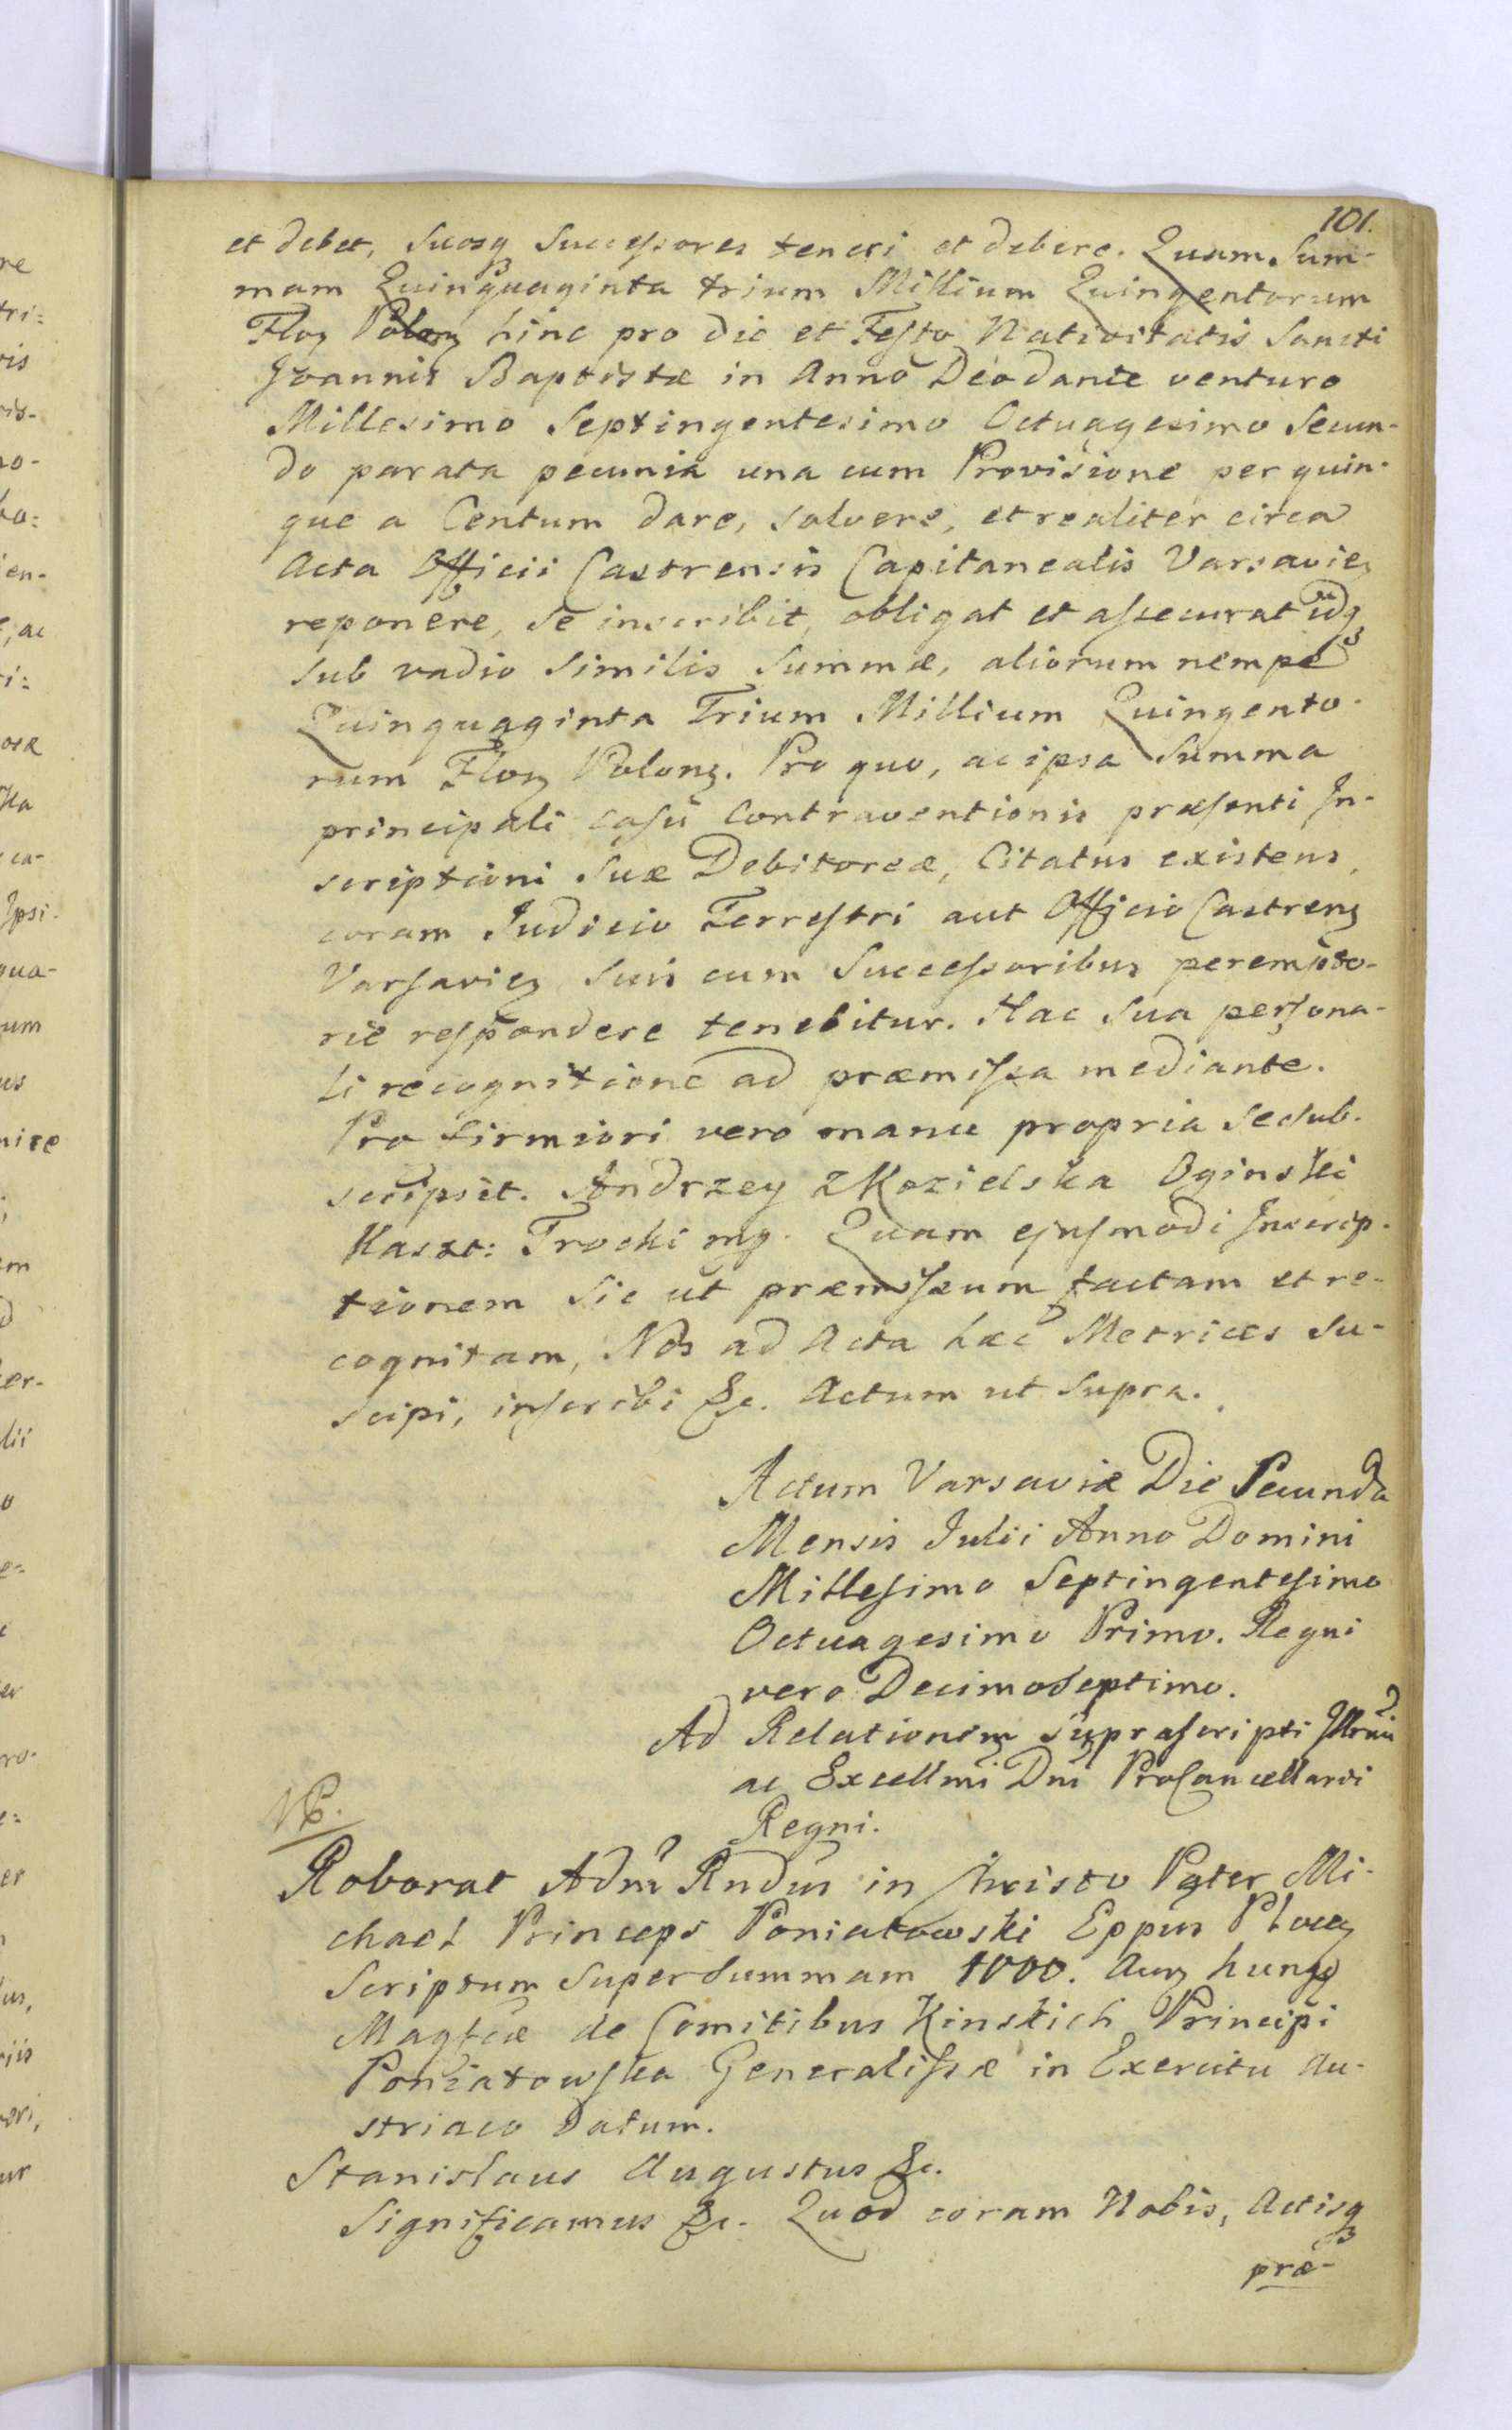 101.
et debet, Suosq Successores teneri et debere. Quam Sum-
mam Quinquaginta trium Millium Quingentorum
Floꝫ Polonꝫ hinc pro die et Festo Nativitatis Sancti
Joannis Baptistæ in Anno Deo dante venturo
Millesimo Septingentesimo Octuagesimo Secun-
do parata pecunia una cum Provisione per quin-
que a Centum dare, solvere, et realiter circa
Acta Officii Castrensis Capitanealis Varsavieꝫ
reponere, Se inscribit, obligat et assecurat idq
sub vadio similis Summæ, aliorum nempe
Quinquaginta Trium Millium Quingento-
rum Floꝫ Polonꝫ. Pro quo, ac ipsa Summa
principali casu Contraventionis præsenti In-
scriptioni Suæ Debitoreæ, Citatus existens,
coram Judicio Terrestri aut Officio Castrenꝫ
Varsavieꝫ Suis cum Successoribus perempto-
rie respondere tenebitur. Hac Sua persona-
li recognitione ad præmissa mediante.
Pro firmiori vero manu propria se sub-
scripsit. Andrzey z Kozielska Oginski
Kaszt: Trocki mp. Quam ejusmodi Inscrip-
tionem Sic ut præmissum factam et re-
cognitam, Nos ad Acta hæc Metrices Su-
scipi, inscribi &c. Actum ut Supra.
Actum Varsaviæ Die Secunda
Mensis Julii Anno Domini
Millesimo Septingentesimo
Octuagesimo Primo. Regni
vero Decimo Septimo.
Ad Relationem Suprascripti Illrmi
ac Excellmi Dni ProCancellarii
Regni.
NB.
Roborat Adm Rndus in Christo Pater Mi-
chael Princeps Poniatowski Eppus Plocꝫ
Scriptum Super Summam 1000. Aurꝫ hungꝫ
Magfcæ de Comitibus Kinskich Principi
Poniatowska Generalissæ in Exercitu Au-
striaco Datum.
Stanislaus Augustus &c.
Significamus &c. Quod coram Nobis, Actisq
præ-